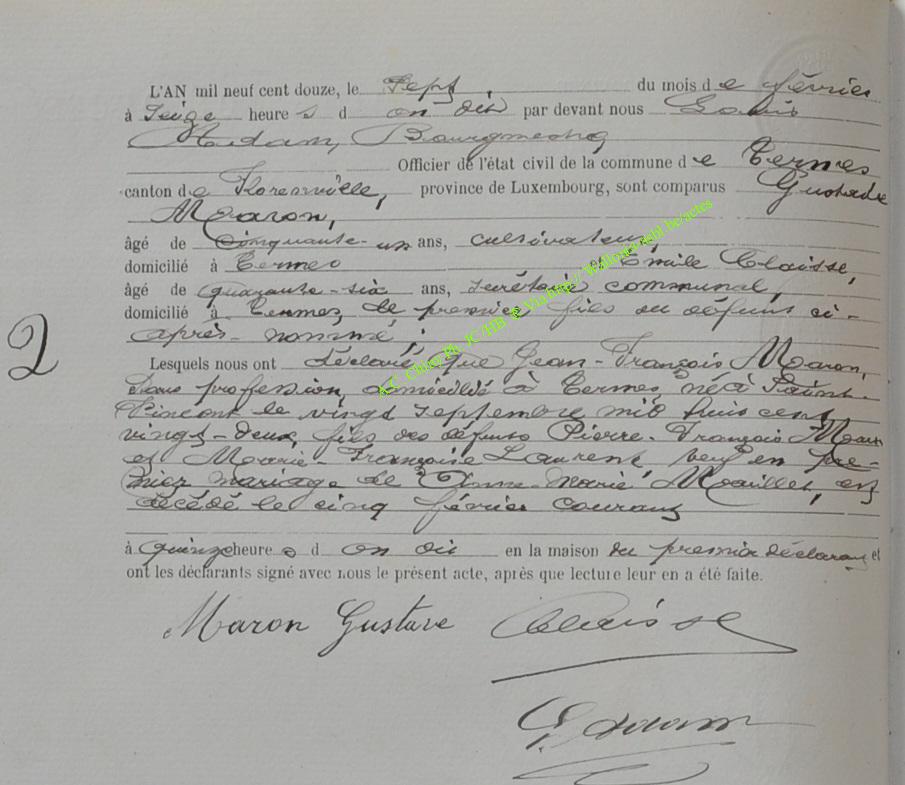 L'AN mil neuf cent douze, le Sept du mois de février
à Seize heures d on dit par devant nous Louis
Adam, Bourgmestre
Officier de l'état civil de la commune de Termes
canton de Florenville, province de Luxembourg, sont comparus Gustave
Maron,
âgé de Cinquante-un ans, cultivateur,
domicilié à Termes et Emile Claisse,
âgé de quarante-six ans, secrétaire communal,
domicilié à Termes, le premier fils du défunt ci-
après nommé ;
2
Lesquels nous ont déclaré que Jean-François Maron,
Sans profession, domicilié à Termes, né à Saint-
Vincent le vingt septembre mil huit cent
vingt-deux, fils des défunts Pierre-François Maron
et Marie-Françoise Laurent, veuf en pre-
mier mariage de Anne-Marie, est
décédé le cinq février courant
à quinze heures d on dit en la maison du premier déclarant et
ont les déclarants signé avec nous le présent acte, après que lecture leur en a été faite.
Maron Gustave Claisse
L. Adam
A.C. Chiny Ph. JC/HB @ Via http:// Wallonia-asbl.be/actes